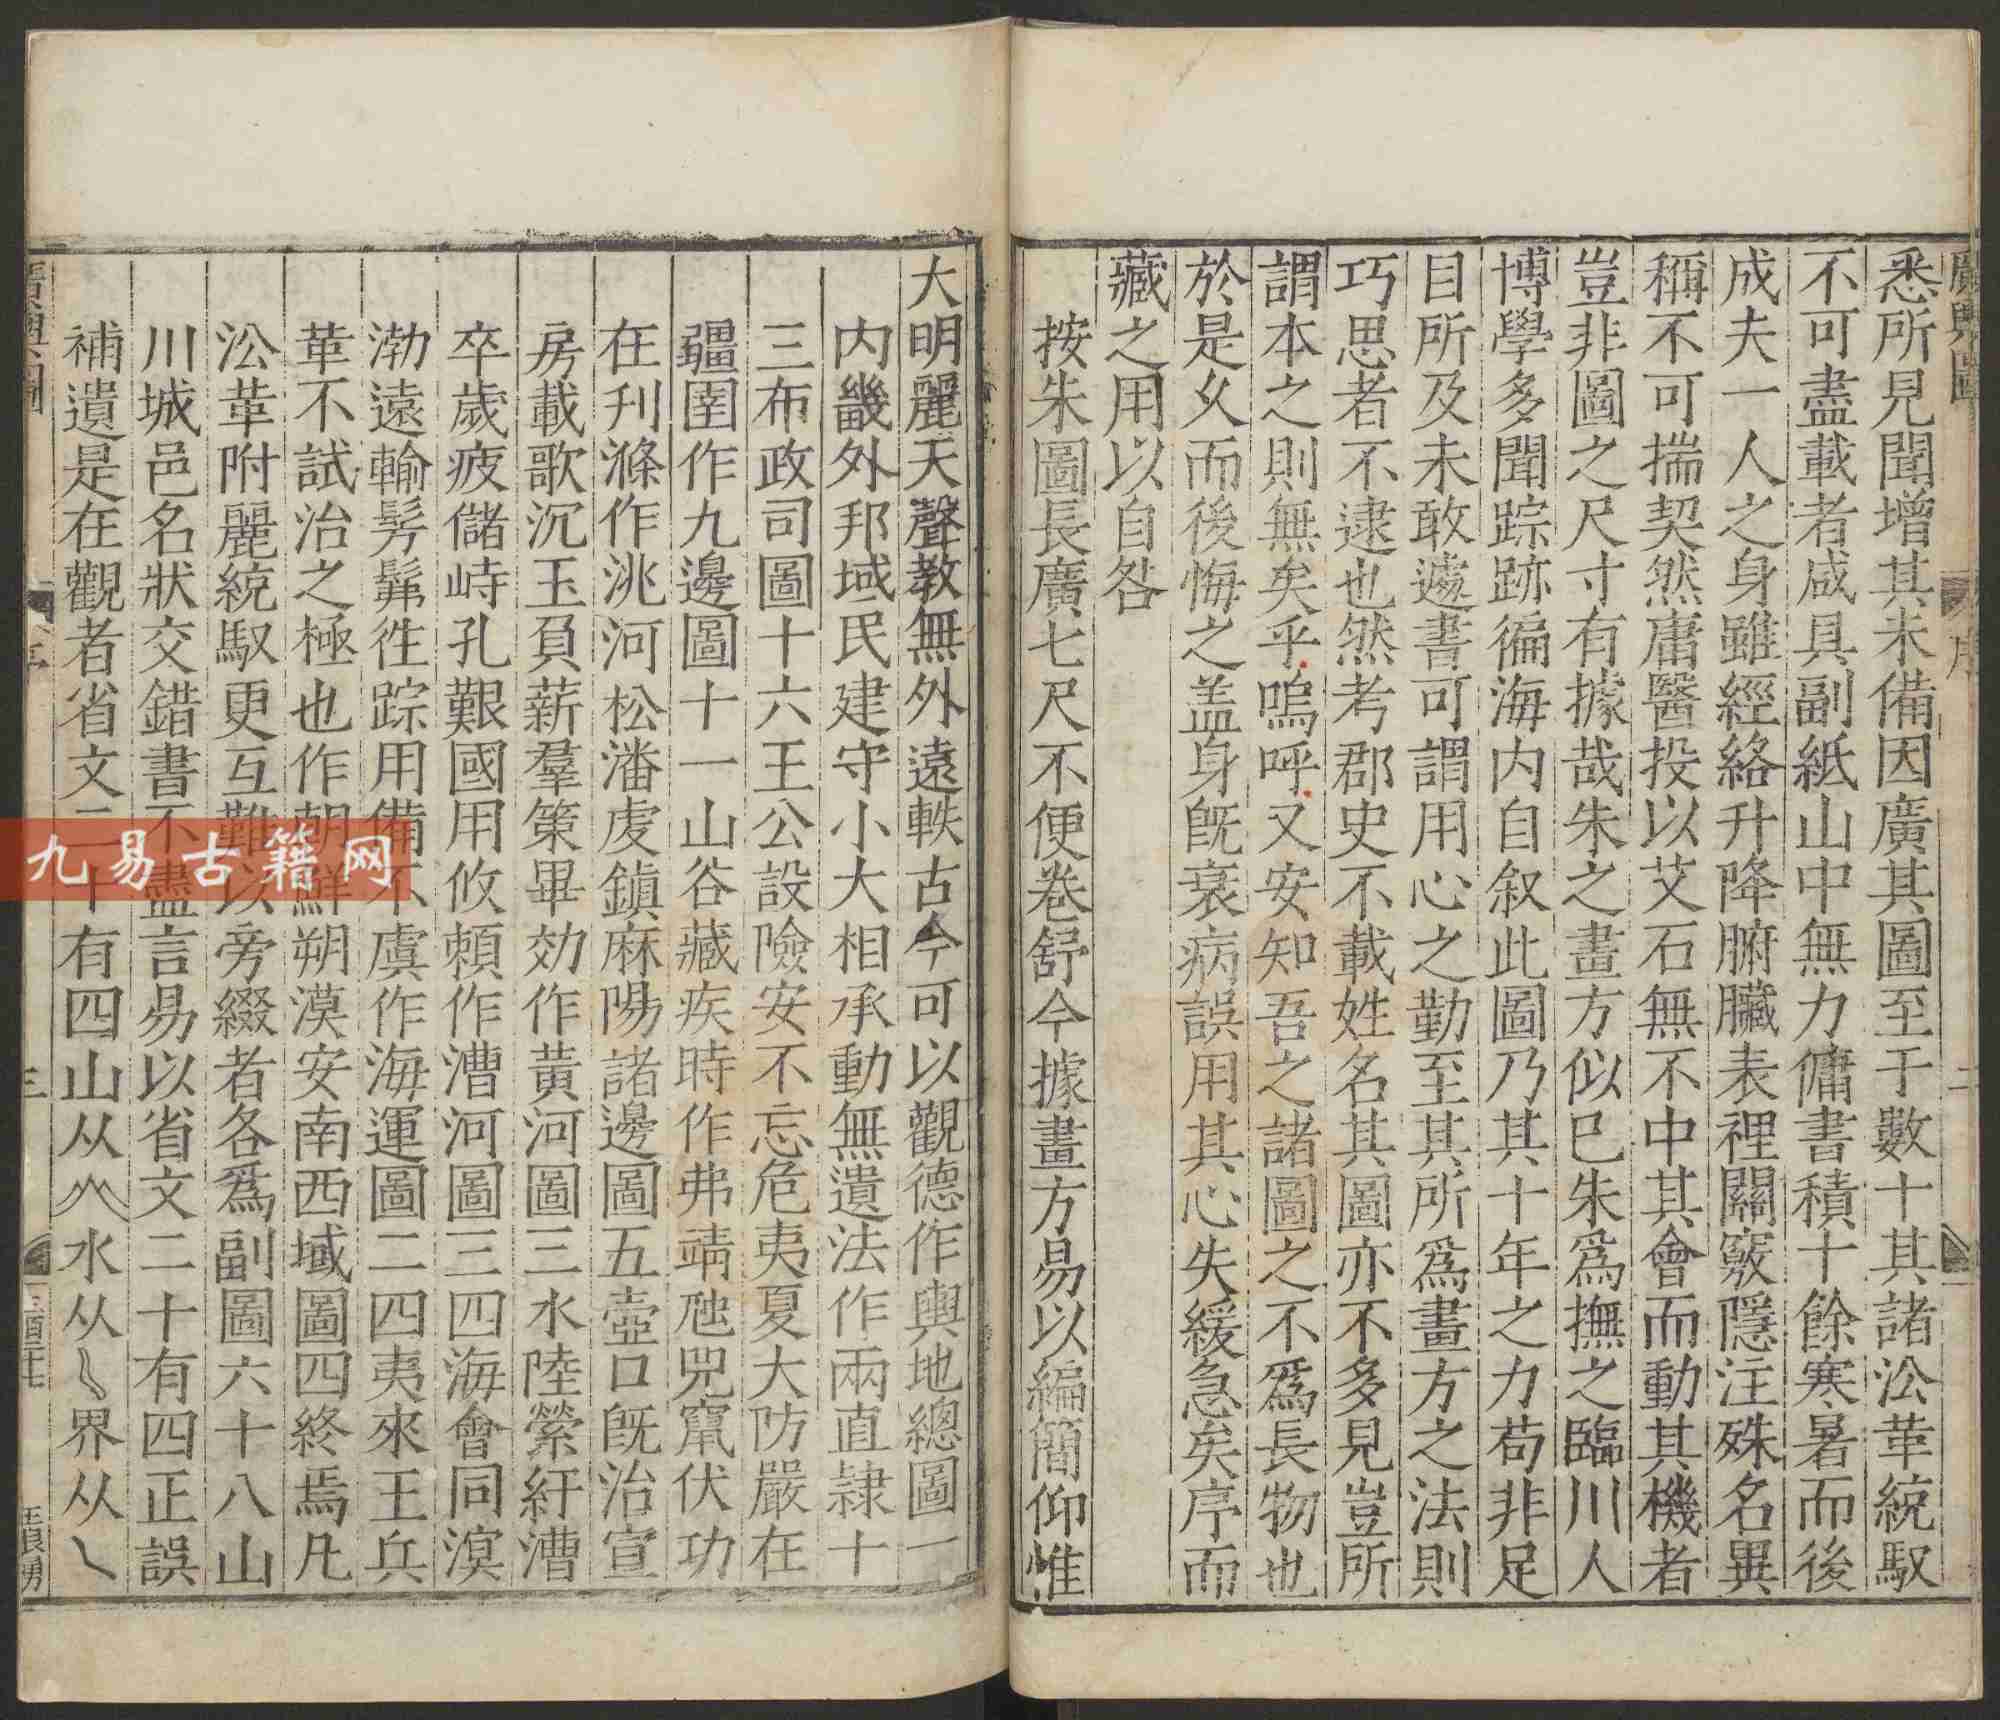 廣輿圖 序 二
悉所見聞增其未備因廣其圖至于數十其諸㳂革統馭
不可盡載者咸具副紙山中無力傭書積十餘寒暑而後
成夫一人之身雖經絡升降腑臟表裡關竅隱注殊名異
稱不可揣契然庸醫投以艾石無不中其會而動其機者
豈非圖之尺寸有據哉朱之畫方似巳朱爲撫之臨川人
博學多聞踪跡徧海内自叙此圖乃其十年之力苟非足
目所及未敢遽書可謂用心之勤至其所爲畫方之法則
巧思者不逮也然考郡史不載姓名其圖亦不多見豈所
謂本之則無矣乎嗚呼又安知吾之諸圖之不爲長物也
於是乆而後悔之盖身旣衰病誤用其心失緩急矣序而
藏之用以自咎
按朱圖長廣七尺不便卷舒今據畫方易以編簡仰惟
大明麗天聲教無外遠軼古今可以觀德作輿地總圖一
内畿外邦域民建守小大相承動無遺法作兩直隸十
三布政司圖十六王公設險安不忘危夷夏大防嚴在
疆圉作九邊圖十一山谷藏疾時作弗靖虺兕竄伏功
在刋滌作洮河松潘䖍鎮麻陽諸邊圖五壺口旣治宣
房載歌沉玉負薪羣策畢効作黃河圖三水陸縈紆漕
卒歲疲儲峙孔艱國用攸賴作漕河圖三四海會同溟
渤遠輸髣髴徃踪用備不虞作海運圖二四夷來王兵
革不試治之極也作朝鮮朔漠安南西域圖四終焉凡
㳂革附麗統馭更互難以旁綴者各爲副圖六十八山
川城邑名狀交錯書不盡言易以省文二十有四正誤
補遺是在觀者省文二十有四山从水从界从
廣輿圖 三
九易古籍网